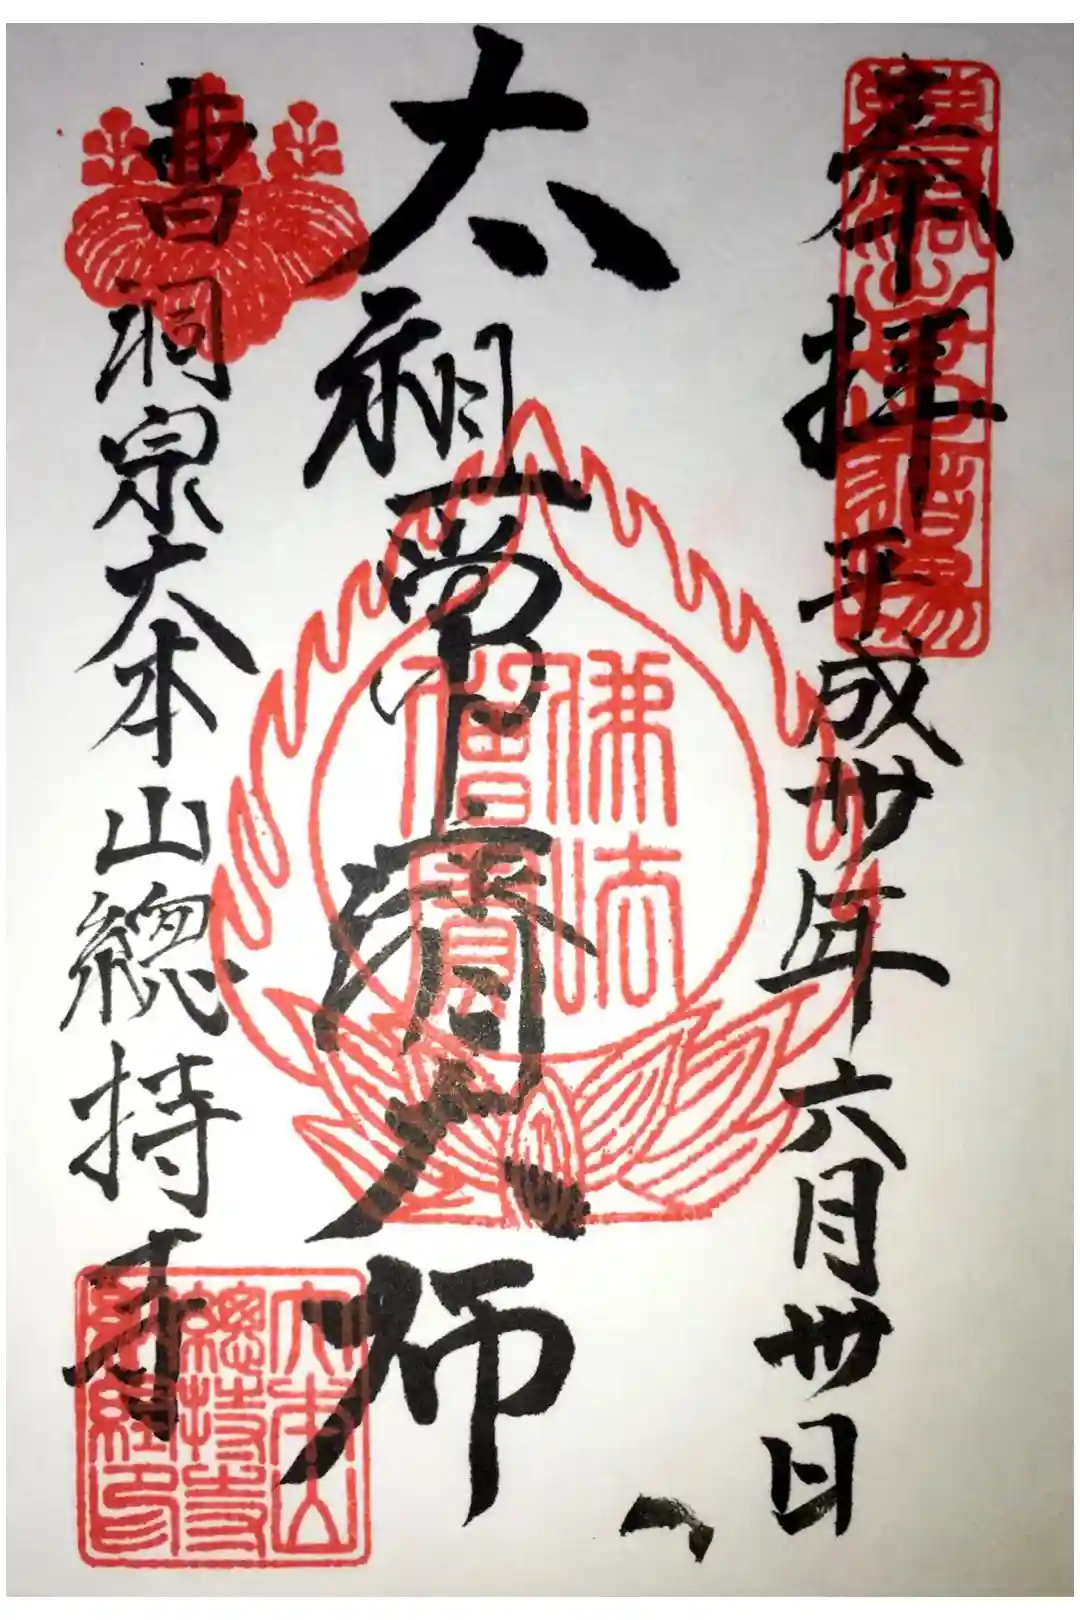 奉拝 平成卅年六月卅日
太祖常済大師
曹洞宗大本山總持寺
佛法
僧寶
大本山
總持寺